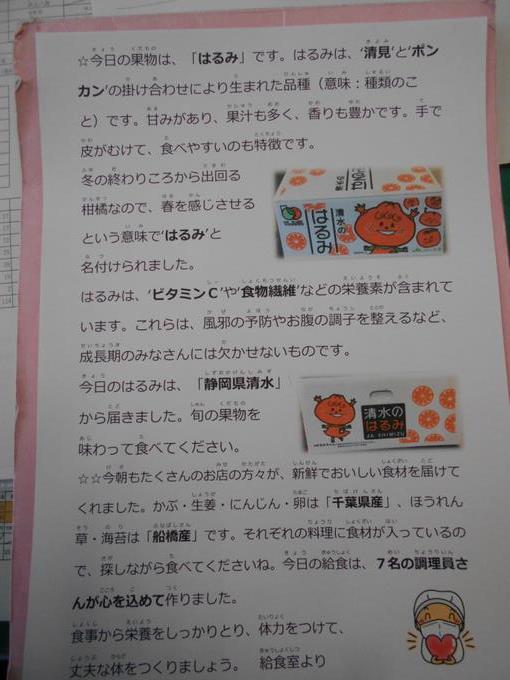 ☆今日の果物は、「はるみ」です。はるみは、‘清見’と‘ポン
カン’の掛け合わせにより生まれた品種（意味：種類のこ
と）です。甘みがあり、果汁も多く、香りも豊かです。手で
皮がむけて、食べやすいのも特徴です。
冬の終わりころから出回る
柑橘なので、春を感じさせる
という意味で‘はるみ’と
名付けられました。
清水の
はるみ
はるみは、‘ビタミンＣ’や‘食物繊維’などの栄養素が含まれて
います。これらは、風邪の予防やお腹の調子を整えるなど、
成長期のみなさんには欠かせないものです。
今日のはるみは、「静岡県清水」
から届きました。旬の果物を
味わって食べてください。
清水の
はるみ
JA SHIMIZU
☆☆今朝もたくさんのお店の方々が、新鮮でおいしい食材を届けて
くれました。かぶ・生姜・にんじん・卵は「千葉県産」、ほうれん
草・海苔は「船橋産」です。それぞれの料理に食材が入っているの
で、探しながら食べてくださいね。今日の給食は、７名の調理員さ
んが心を込めて作りました。
食事から栄養をしっかりとり、体力をつけて、
丈夫な体をつくりましょう。 給食室より